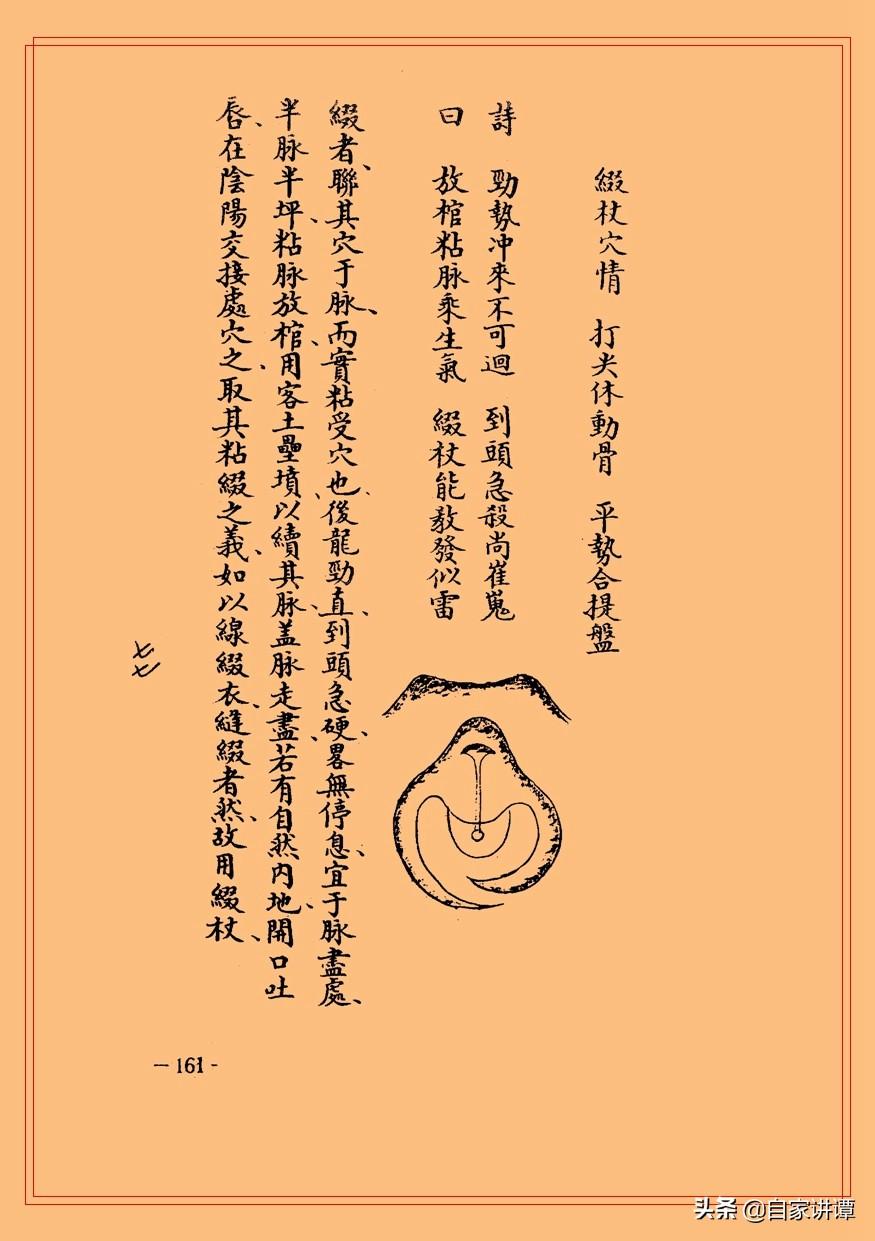 綴杖穴情　打尖休動骨　平勢合提盤
詩　勁勢冲來不可迴　到頭急殺尚崔嵬
曰　放棺粘脉乘生氣　綴杖能教發似雷
綴者、聯其穴于脉、而實粘受穴也、後龍勁直、到頭急硬、畧無停息、宜于脉盡處、
半脉半坪、粘脉放棺、用客土壘墳、以續其脉、盖脉走盡、若有自然内地、開口吐
唇、在陰陽交接處穴之、取其粘綴之義、如以線綴衣、縫綴者然、故用綴杖、
七七
– 161 -
头条 @自家讲谭